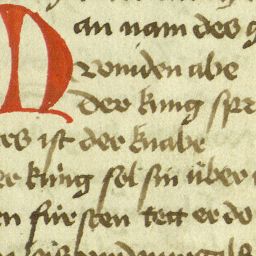 D
an nam des g
romden abe
der kung spr
es ist der knabe
er kúng sol sin úber
en fúrsten tett er do